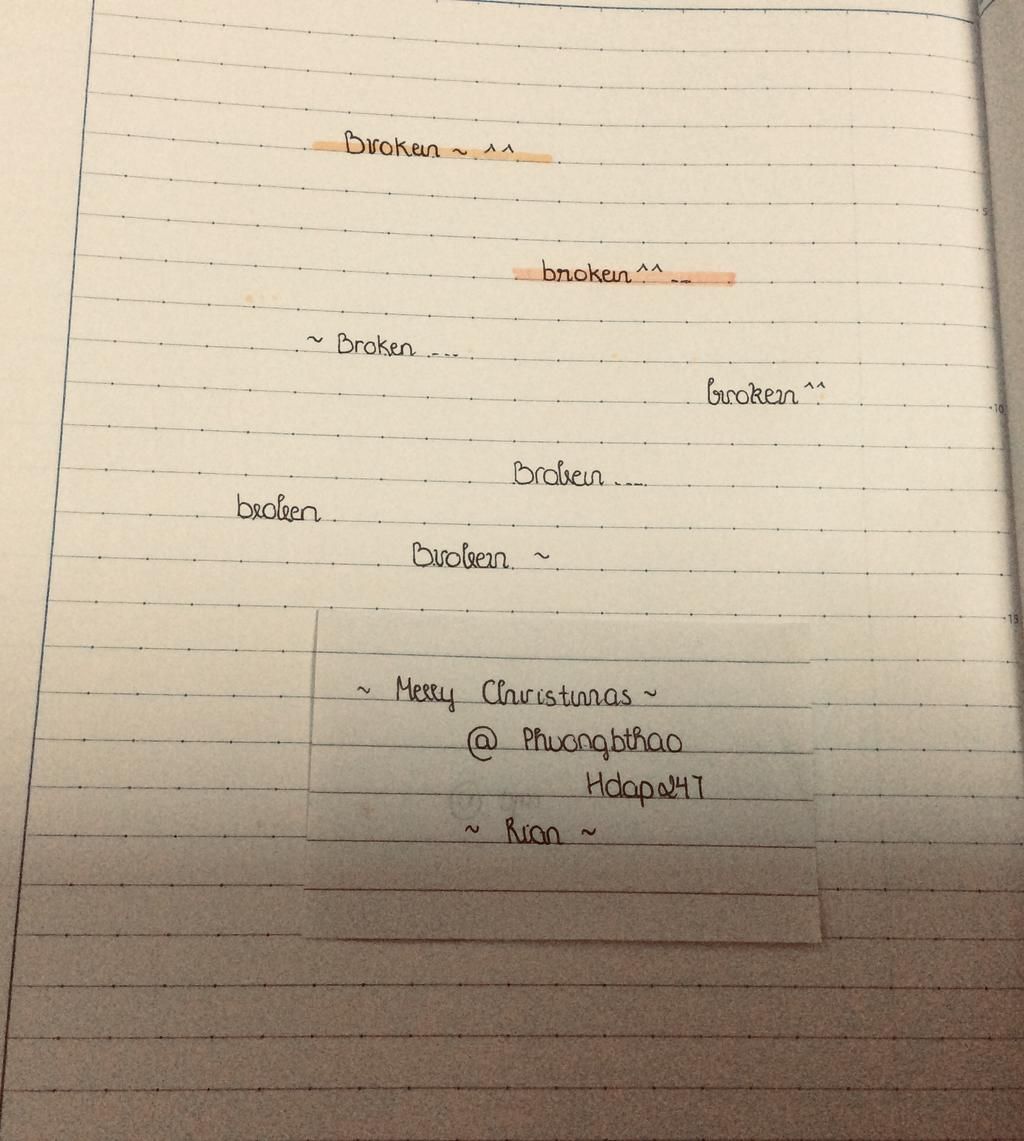 Broken ~ ^^
broken ^^ ...
~ Broken ...
broken ^^
Broken ....
broken
Broken ~
~ Merry Christmas ~
@ Phuongbthao
Hdapa247
~ Rian ~
5
10
15